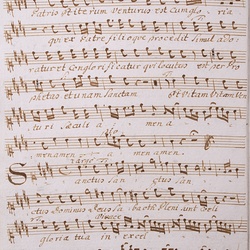 Patris et iterum venturus est cum glo- ria
qui ex Patre filioque procedit simul ado-
ratur et Conglorificatur qui locutus est per Pro
phetas et unam Sanctam et Vitam Venturi
turi saeculi a men a
men amen a men amen
Sanctus san ctus san
ctus Dominus Deus Sabaoth Pleni sunt
gloria tua in excel